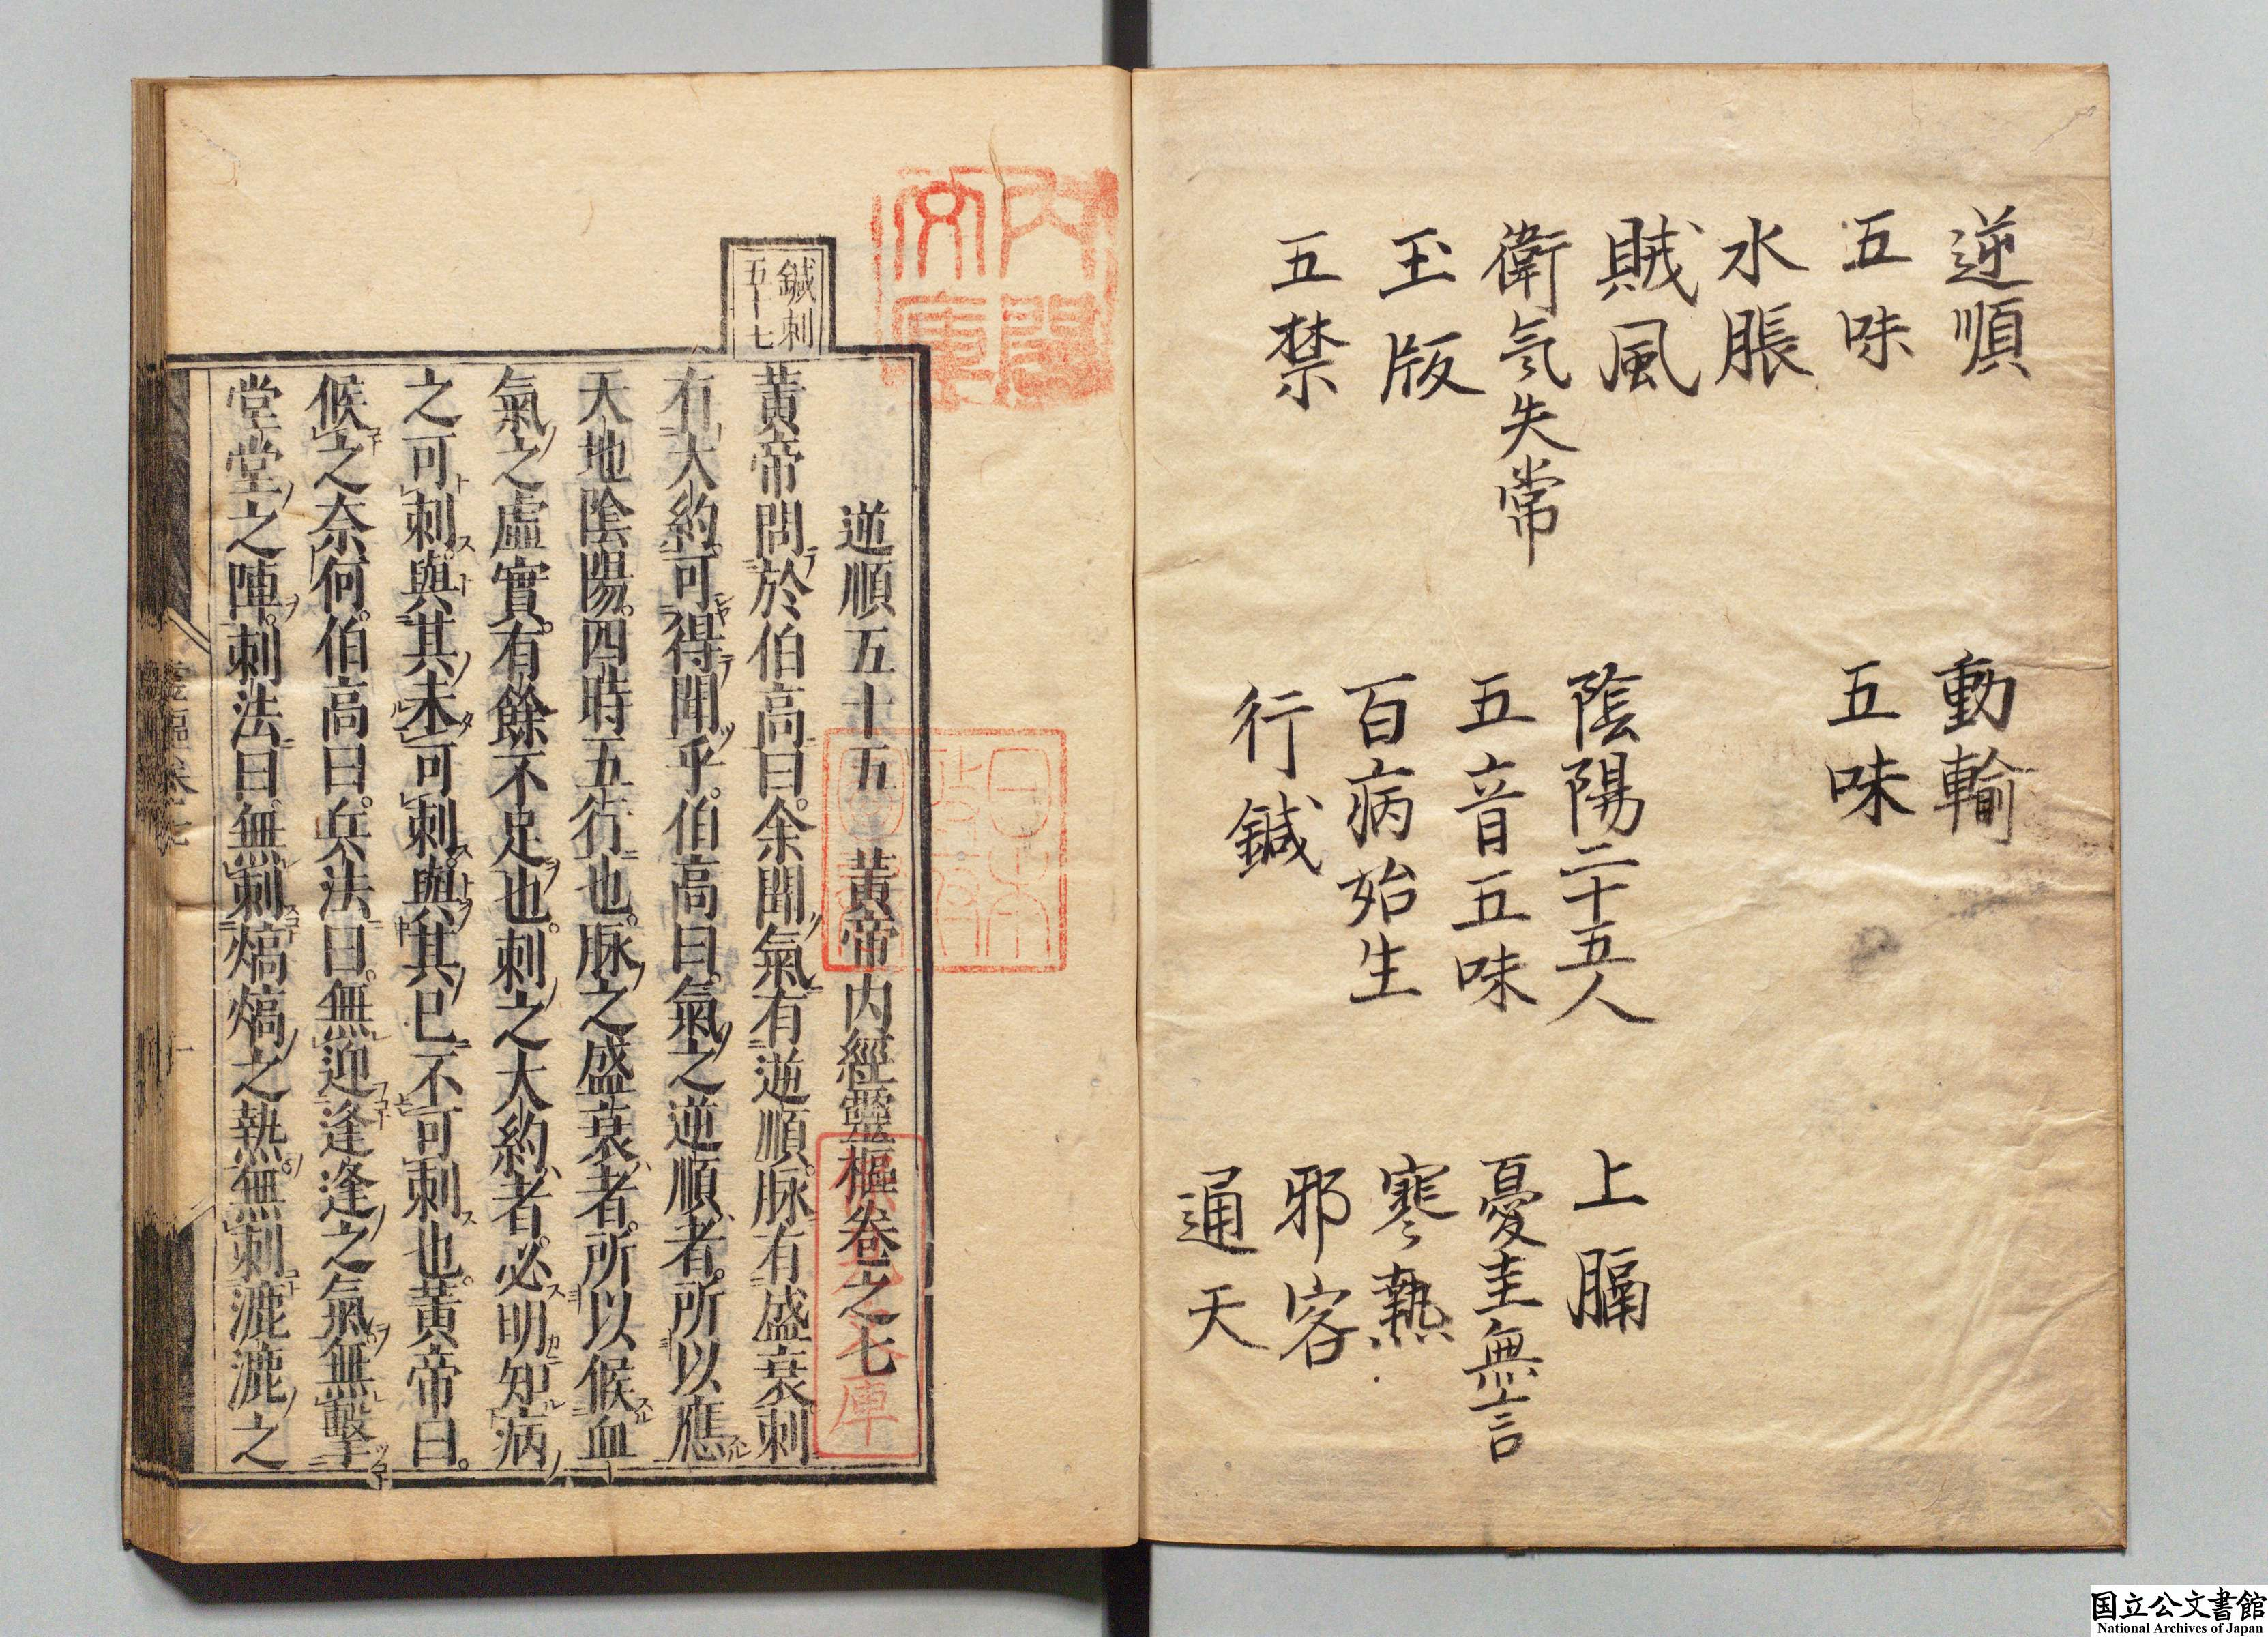 逆順
五味
水脹
賊風
衛氣失常
玉版
五禁
動輸
五味
陰陽二十五人
五音五味
百病始生
行鍼
上膈
憂恚無言
寒熱
邪客
通天
内閣文庫
鍼刺
五十七
逆順五十五 黃帝内經靈樞卷之七
黃帝問於伯高曰。余聞氣有逆順。脉有盛衰。刺
有大約。可得聞乎。伯高曰。氣之逆順者。所以應
天地陰陽。四時五行也。脉之盛衰者。所以候血
氣之虛實。有餘不足也。刺之大約者。必明知病
之可刺。與其未可刺。與其已不可刺也。黃帝曰。
候之奈何。伯高曰。兵法曰。無迎逢逢之氣。無擊
堂堂之陣。刺法曰。無刺熇熇之熱。無刺漉漉之
国立公文書館
National Archives of Japan